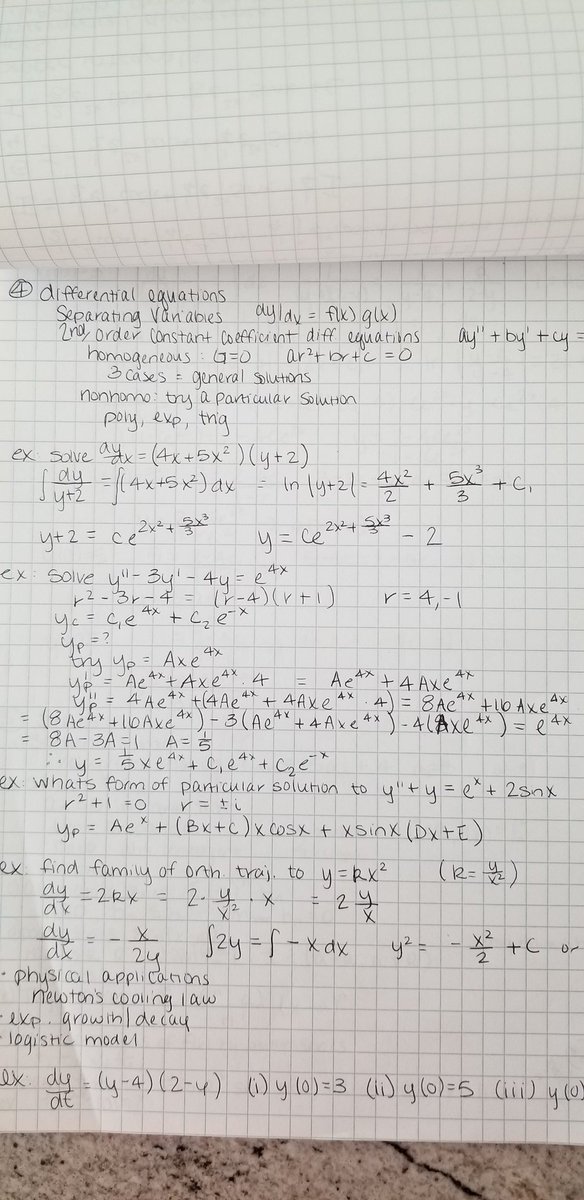 ④ differential equations
Separating Variables dy/dx = f(x) g(x)
2nd order constant coefficient diff equations ay'' + by' + cy =
homogeneous : G=0 ar² + br + c = 0
3 cases = general solutions
nonhomo: try a particular solution
poly, exp, trig
ex: solve dy/dx = (4x+5x²)(y+2)
∫ dy/(y+2) = ∫(4x+5x²) dx = ln |y+2| = 4x²/2 + 5x³/3 + C₁
y+2 = ce^(2x² + 5x³/3) y = ce^(2x² + 5x³/3) - 2
ex: Solve y'' - 3y' - 4y = e^(4x)
r² - 3r - 4 = (r-4)(r+1) r = 4, -1
yc = c₁e^(4x) + c₂e^(-x)
yp = ?
try yp = Axe^(4x)
yp' = Ae^(4x) + Axe^(4x) · 4 = Ae^(4x) + 4Axe^(4x)
yp'' = 4Ae^(4x) + (4Ae^(4x) + 4Axe^(4x) · 4) = 8Ae^(4x) + 16Axe^(4x)
= (8Ae^(4x) + 16Axe^(4x)) - 3(Ae^(4x) + 4Axe^(4x)) - 4(Axe^(4x)) = e^(4x)
= 8A - 3A = 1 A = 1/5
∴ y = 1/5 xe^(4x) + c₁e^(4x) + c₂e^(-x)
ex: whats form of particular solution to y'' + y = e^x + 2snx
r² + 1 = 0 r = ± i
yp = Ae^x + (Bx+C) x cosx + x sinx (Dx+E)
ex: find family of orth. traj. to y = kx² (k = y/x²)
dy/dx = 2kx = 2 · y/x² · x = 2 y/x
dy/dx = - x/2y ∫2y = ∫ -x dx y² = - x²/2 + C or
· physical applications
newton's cooling law
· exp. growth/decay
· logistic model
ex: dy/dt = (y-4)(2-y) (i) y(0)=3 (ii) y(0)=5 (iii) y(0)